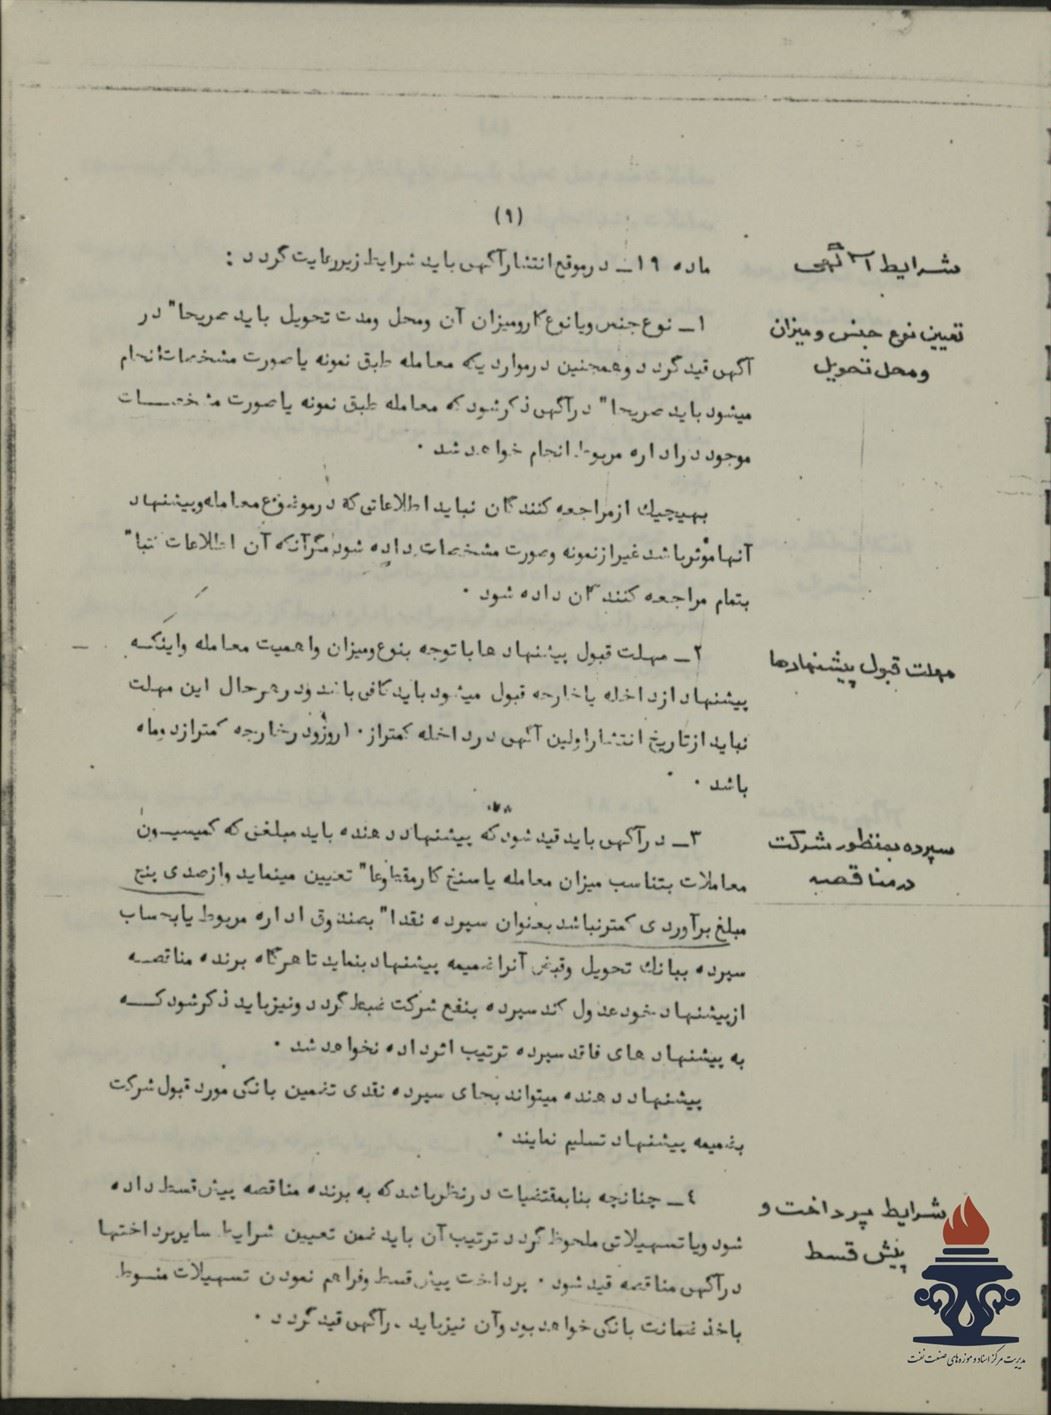 (۹)
شرایط آگهی
ماده ۱۹ــ درموقع انتشارآگهی باید شرایط زیررعایت گردد :
تعیین نوع جنس و میزان
و محل تحویل
۱ــ نوع جنس ویانوع کارومیزان آن ومحل ومدت تحویل باید صریحا" در
آگهی قید گردد وهمچنین درمواردیکه معامله طبق نمونه یاصورت مشخصات انجام
میشود باید صریحا" درآگهی ذکرشودکه معامله طبق نمونه یاصورت مشخصــات
موجود دراداره مربوط انجام خواهد شد ۰
بهیچیك ازمراجعه کنندگان نباید اطلاعاتی که درموضوع معامله وپیشنهاد
آنها موثرباشد غیرازنمونه وصورت مشخصات داده شود مگرآنکه آن اطلاعات کتبا"
بتمام مراجعه کنندگان داده شود ۰
مهلت قبول پیشنهادها
۲ــ مهلت قبول پیشنهادها با توجه بنوع ومیزان واهمیت معامله واینکــه
پیشنهاد ازداخله یاخارجه قبول میشود باید کافی باشد ودرهرحال این مهلت
نباید ازتاریخ انتشاراولین آگهی درداخله کمتراز ۱۰روزودرخارجه کمترازدوماه
باشد ۰
سپرده بمنظور شرکت
در مناقصه
۳ــ درآگهی باید قید شودکه پیشنهاددهنده باید مبلغی که کمیسیــون
معاملات بتناسب میزان معامله یا سنخ کارمقطوعا" تعیین مینماید وازصدی پنج
مبلغ برآوردی کمترنباشد بعنوان سپرده نقدا" بصندوق اداره مربوط یابحساب
سپرده ببانك تحویل وقبض آنراضمیمه پیشنهاد بنماید تاهرگاه برنده مناقصــه
ازپیشنهاد خودعدول کند سپرده بنفع شرکت ضبط گردد ونیزباید ذکرشودکــه
به پیشنهاد های فاقد سپرده ترتیب اثرداده نخواهد شد ۰
پیشنهاد دهنده میتواند بجای سپرده نقدی تضمین بانکی مورد قبول شرکت
بضمیمه پیشنهاد تسلیم نماید ۰
شرایط پرداخت و
پیش قسط
٤ــ چنانچه بنابمقتضیات درنظرباشدکه به برنده مناقصه پیش قسط داده
شود ویاتسهیلاتی ملحوظ گردد ترتیب آن باید ضمن تعیین شرایط سایرپرداختها
درآگهی مناقصه قید شود ۰ پرداخت پیش قسط وفراهم نمودن تسهیلات منــوط
باخذ ضمانت بانکی خواهد بود وآن نیزباید درآگهی قید گردد ۰
مدیریت مرکز اسناد و موزه‌های صنعت نفت